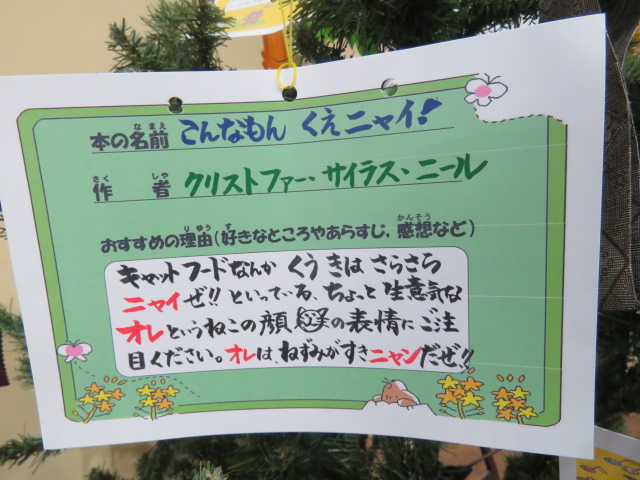 本の名前 こんなもん くえニャイ!
作者 クリストファー・サイラス・ニール
おすすめの理由(好きなところやあらすじ、感想など)
キャットフードなんか くうきは さらさら
ニャイぜ!! といっている、ちょっと 生意気な
オレというねこの顔の表情にご注
目ください。オレは、ねずみがすきニャンだぜ!!